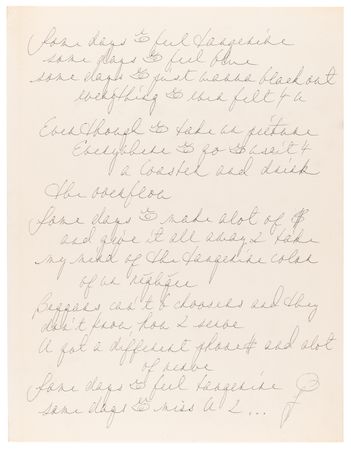 Some days 👁 feel tangerine
some days 👁 feel blue
some days 👁 just wanna black out
everything 👁 ever felt 4 u
Even though 👁 take ur picture
Everywhere 👁 go 👁 use it 4
a coaster and drink
the overflow
Some days 👁 make alot of $
and give it all away 2 take
my mind of the tangerine color
of ur
Beggars can't b choosers and they
don't know how 2 serve
got a different phone# and alot
of nerve
Some days 👁 feel tangerine
some days 👁 miss U 2 ...